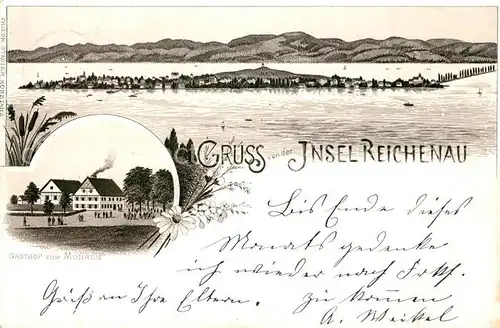 GRUSS von der INSEL REICHENAU
GASTHOF ZUM MOHREN
Bis Ende dieses
Monats gedenke
ich wieder nach
zu kommen
Grüß an Ihre Eltern.
A. Weikel